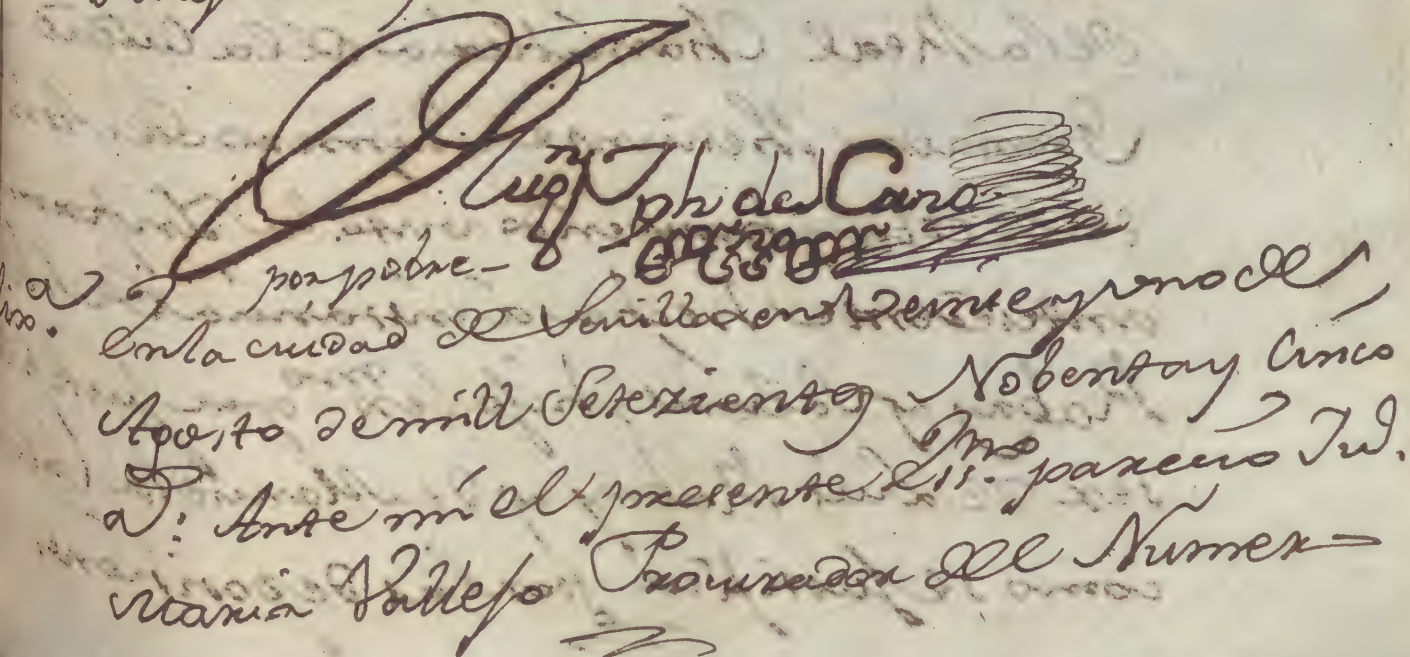 Jph del Cano
por pobre
En la ciudad de Sevilla en Veinte y uno de
Agosto de mill Setezientos Nobenta y Cinco
a.s Ante mi el presente Ess.no parecio
Maria Vallejo Procurador del Numer